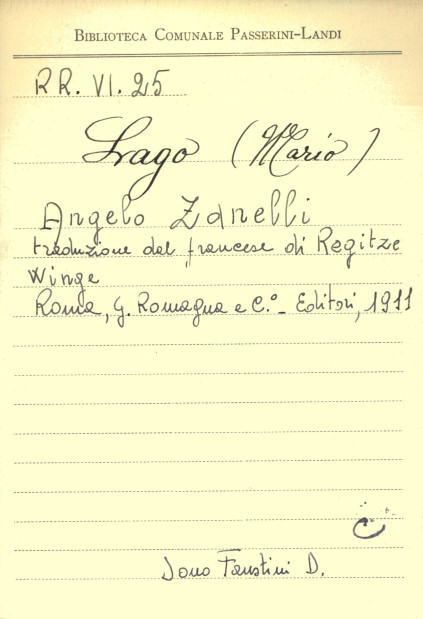 BIBLIOTECA COMUNALE PASSERINI-LANDI
RR. VI. 25
Lago (Mario)
Angelo Zanelli
traduzione dal francese di Regitze
Winge
Roma, G. Romagna e C.° - Editori, 1911
C
Dono Faustini D.